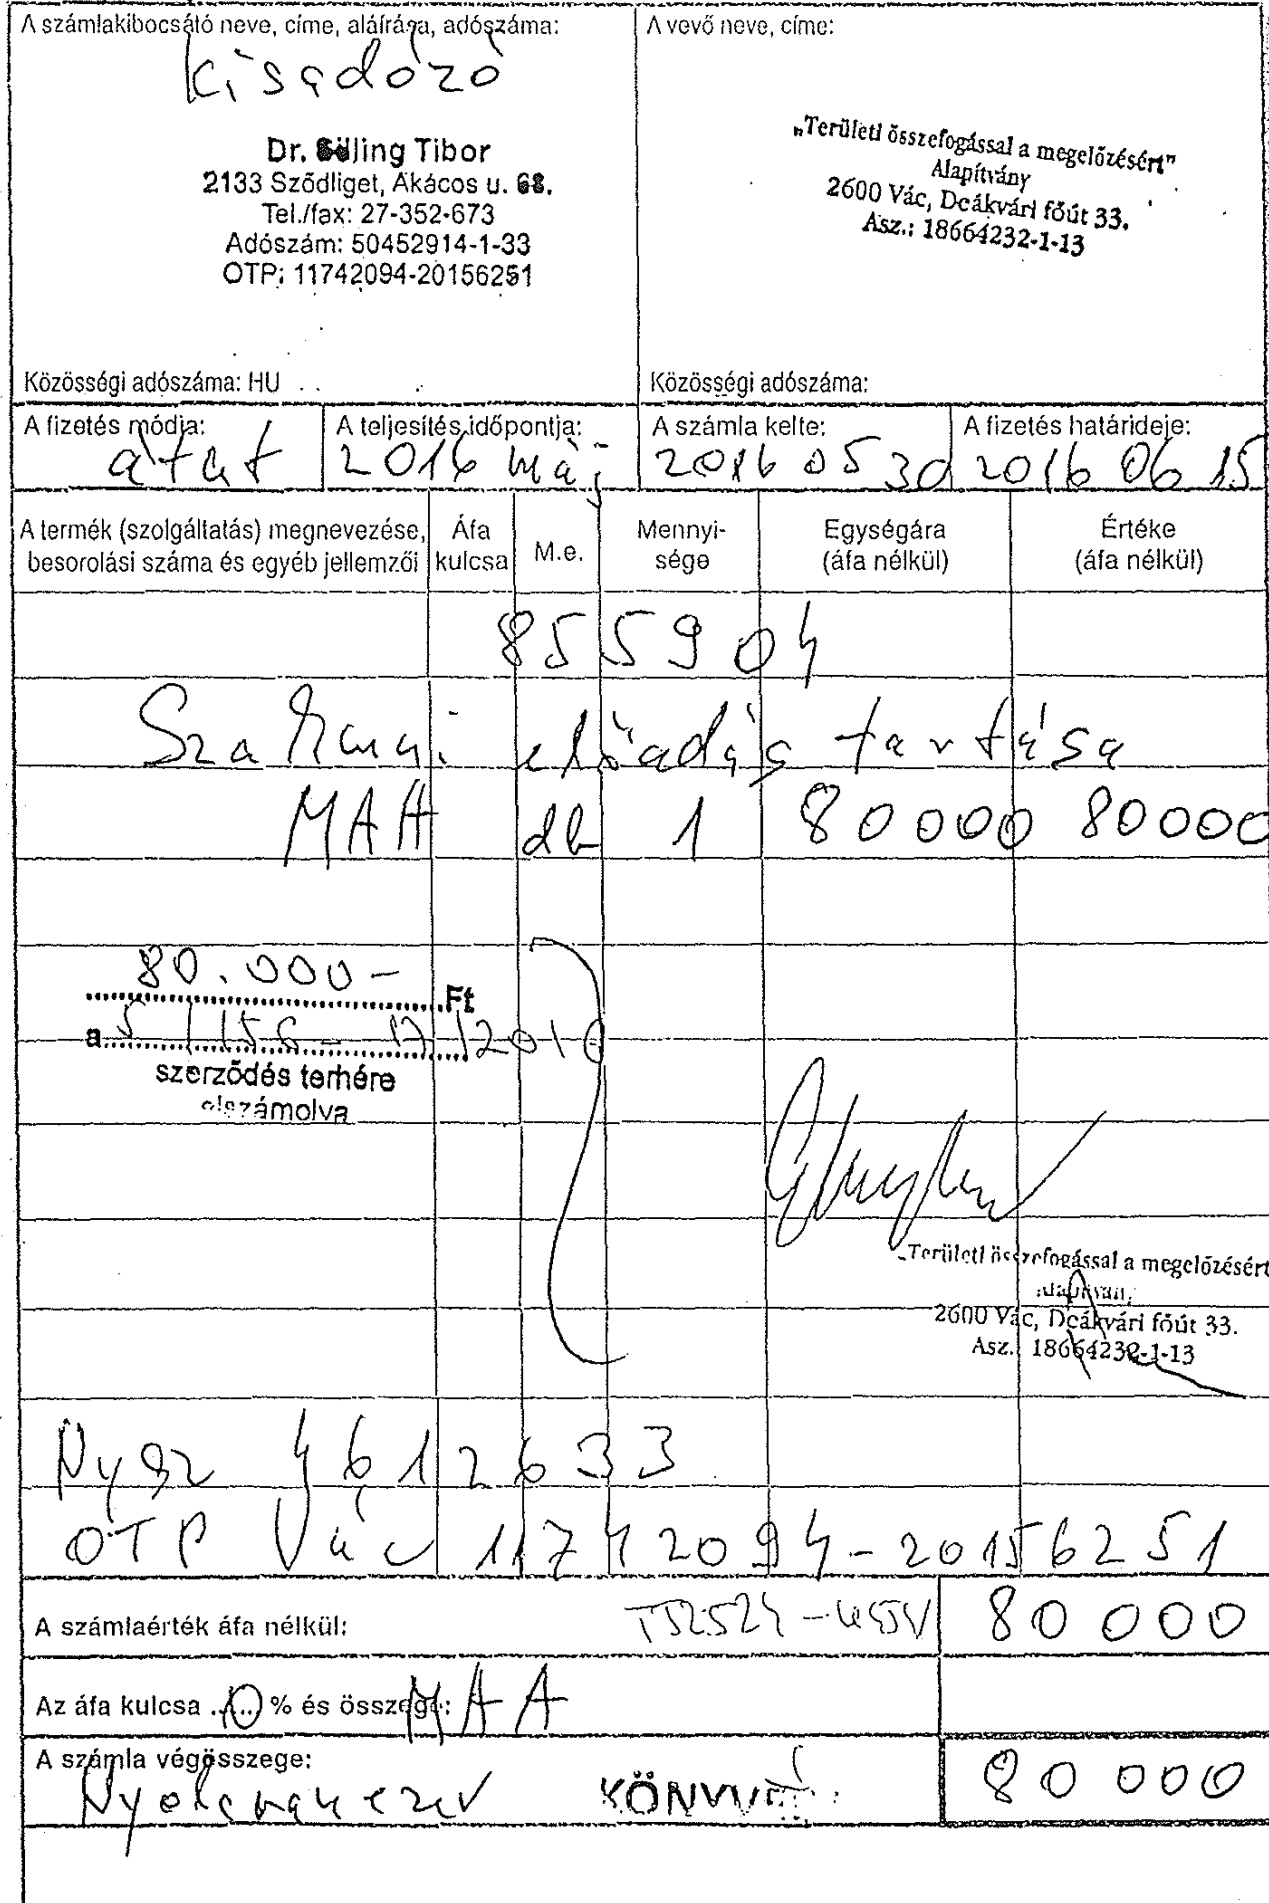 A számlakibocsátó neve, címe, aláírása, adószáma:
Kisadózó
Dr. Tibor
2133 Sződliget, Akácos u. 68.
Tel./fax: 27-352-673
Adószám: 50452914-1-33
OTP: 11742094-20156251
Közösségi adószáma: HU
A vevő neve, címe:
„Területi összefogással a megelőzésért”
Alapítvány
2600 Vác, Deákvári főút 33.
Asz.: 18664232-1-13
Közösségi adószáma:
A fizetés módja:
átut
A teljesítés időpontja:
2016 máj
A számla kelte:
2016 05 30
A fizetés határideje:
2016 06 15
A termék (szolgáltatás) megnevezése, besorolási száma és egyéb jellemzői
Áfa kulcsa
M.e.
Mennyi-
sége
Egységára
(áfa nélkül)
Értéke
(áfa nélkül)
855904
Szakmai előadás tartása
MAA db 1 80000 80000
80.000-
Ft
a
szerződés terhére
elszámolva
„Területi összefogással a megelőzésért
2600 Vác, Deákvári főút 33.
Asz. 18664232-1-13
Nysz 4612633
OTP Vác 11742094-20156251
A számlaérték áfa nélkül:
80 000
Az áfa kulcsa 0 % és összege: MAA
A számla végösszege:
Nyolcvanezer
80 000